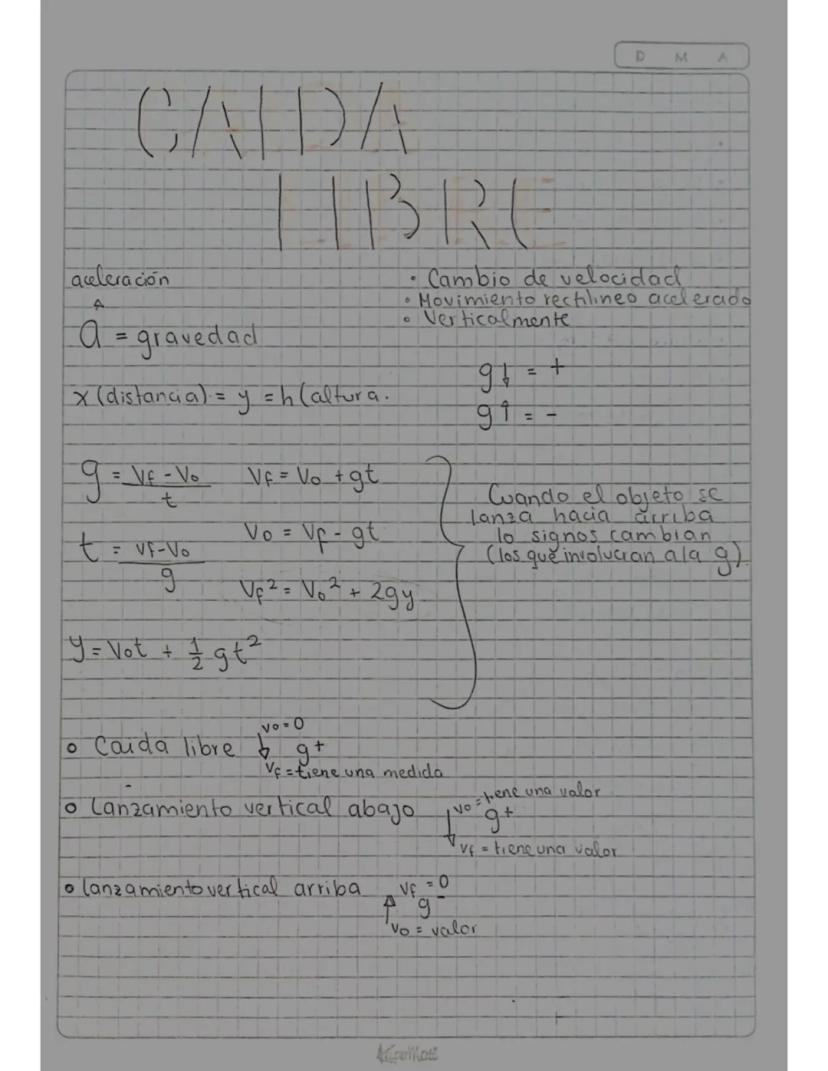 D M A
CAIDA
LIBRE
aceleración
a = gravedad
• Cambio de velocidad
• Movimiento rectilineo acelerado
• Verticalmente
x (distancia) = y = h (altura.
g↓ = +
g↑ = -
g = Vf - Vo / t
Vf = Vo + gt
t = Vf - Vo / g
Vo = Vf - gt
Vf² = Vo² + 2gy
y = Vot + 1/2 gt²
Cuando el objeto se
lanza hacia arriba
lo signos cambian
(los que involucran a la g)
o Caida libre ↓ vo = 0
g+
Vf = tiene una medida
o Lanzamiento vertical abajo ↓ vo = tiene una valor
g+
Vf = tiene una valor
o lanzamiento vertical arriba ↑ Vf = 0
g-
Vo = valor